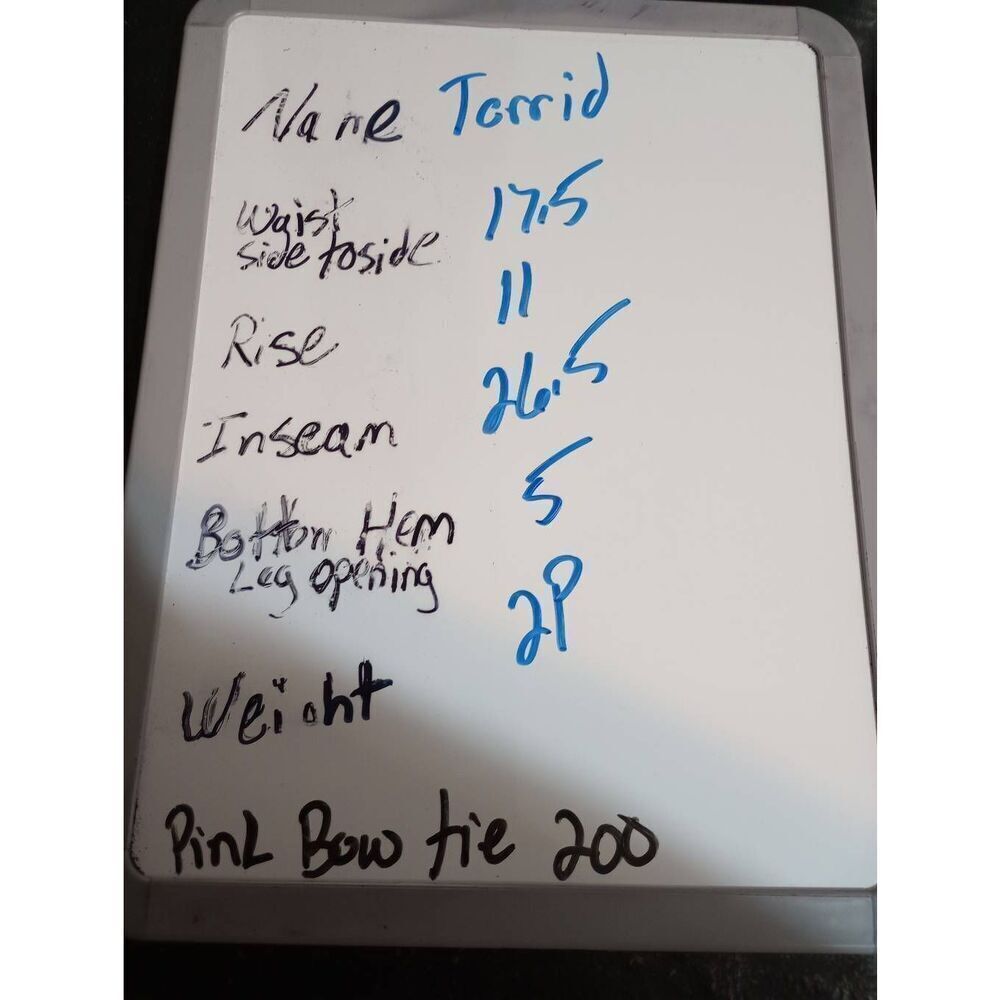 Name Torrid
Waist 17.5
side to side
Rise 11
Inseam 26.5
Bottom Hem 5
Leg opening
Weight 2P
Pink Bow tie 200